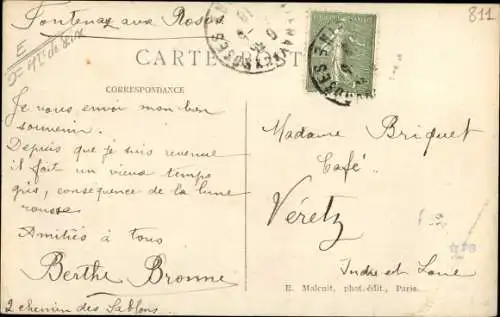 Fontenay aux Roses
811
E
CARTE POSTALE
CORRESPONDANCE
Je vous envoi mon bon
souvenir.
Depuis que je suis revenue
il fait un vieux temps
gris, conséquence de la lune
rousse
Amitiés à tous
Berthe Bronne
2 chemin des Sablons.
Madame Briquet
Café
Véretz
Indre et Loire
E. Malcuit, phot.-édit., Paris.